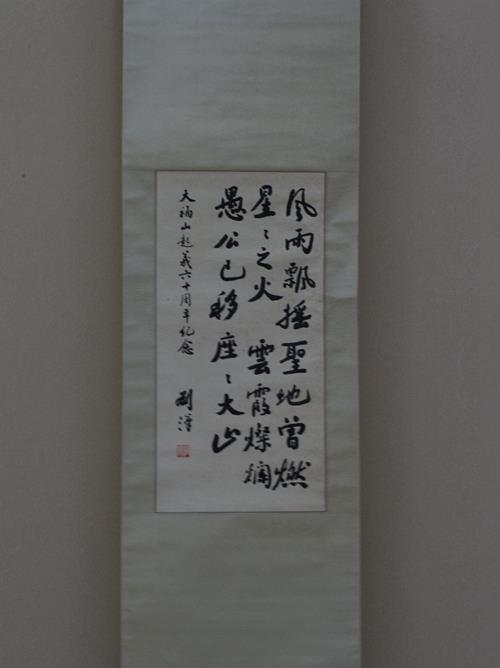 風雨飄搖聖地曾燃
星〻之火 雲霞燦爛
愚公已移座〻大山
天福山起義六十周年纪念